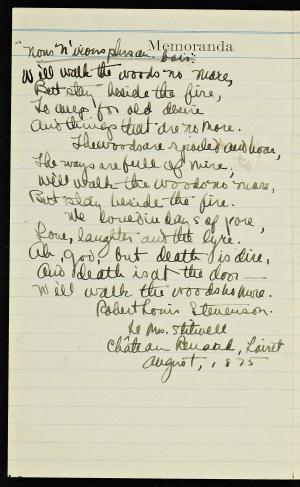 Memoranda
"Nous n'irons plus au bois."
We'll walk the woods no more,
But stay beside the fire,
To weep for old desire
And things that are no more.
The woods are spoiled and hoar,
The ways are full of mire,
We'll walk the woods no more,
But stay beside the fire.
We loved in days of yore,
Love, laughter and the lyre.
Ah, God, but death is dire,
And death is at the door —
We'll walk the woods no more.
Robert Louis Stevenson.
To Mrs. Sitwell
Château Renard, Loiret
August, 1875